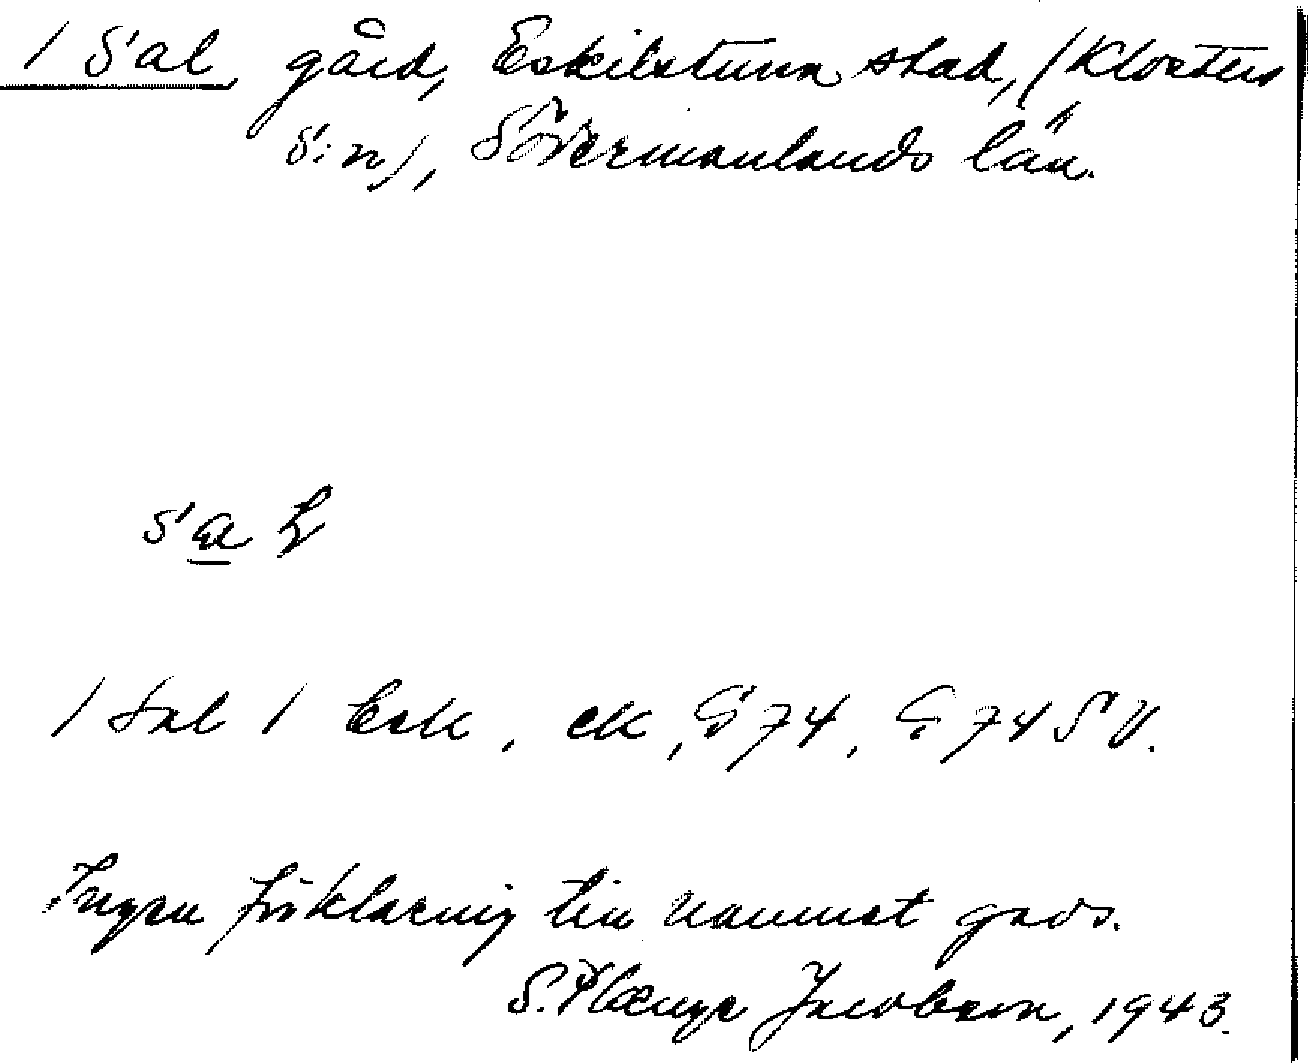 / Sal, gård, Eskilstuna stad, (Klosters
s:n), Södermanlands län.
sa
/ Sal / Esk, ek, G 74, G 74 SV.
Ingen förklaring till namnet gavs.
S. Jacobson, 1943.